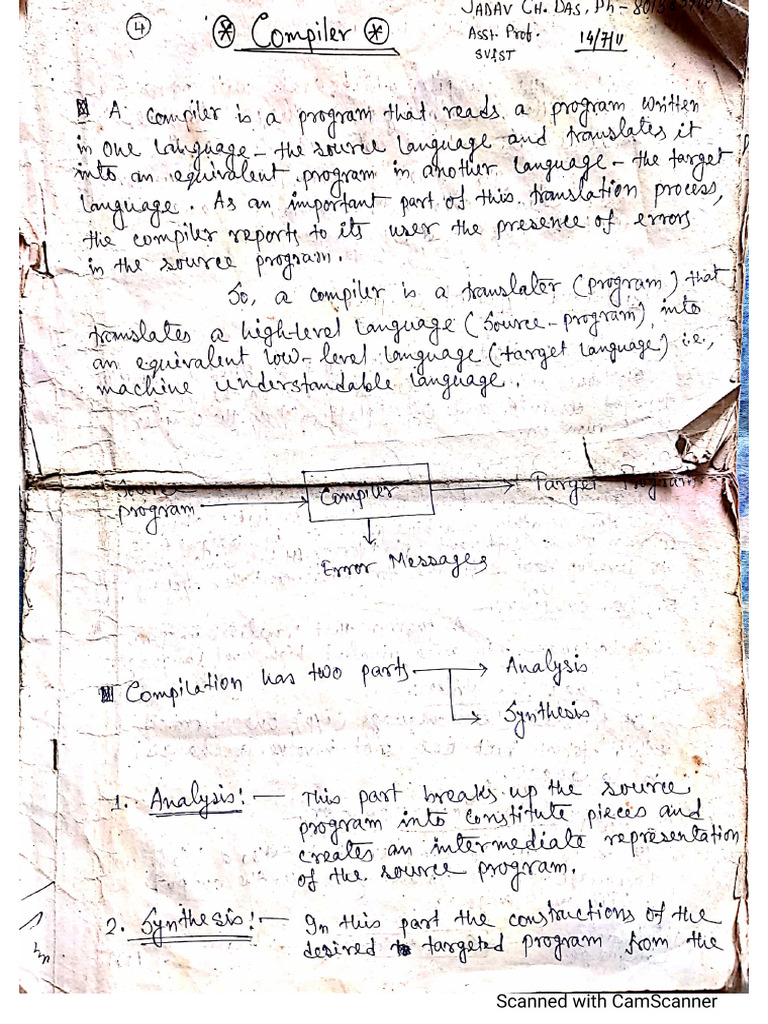 4
* Compiler *
JADAV CH. DAS, Ph-
Asst. Prof.
SVIST
14/7/11
A compiler is a program that reads a program written
in one language - the source language and translates it
into an equivalent program in another language - the target
language. As an important part of this translation process,
the compiler reports to its user the presence of errors
in the source program.
So, a compiler is a translater (program) that
translates a high-level language (source-program), into
an equivalent low-level language (target language) i.e.,
machine understandable language.
Source
program
Compiler
Target Program
Error Messages
Compilation has two parts
Analysis
Synthesis
1. Analysis:- This part breaks up the source
program into constitute pieces and
creates an intermediate representation
of the source program.
2. Synthesis:- In this part the constructions of the
desired targeted program from the
Scanned with CamScanner